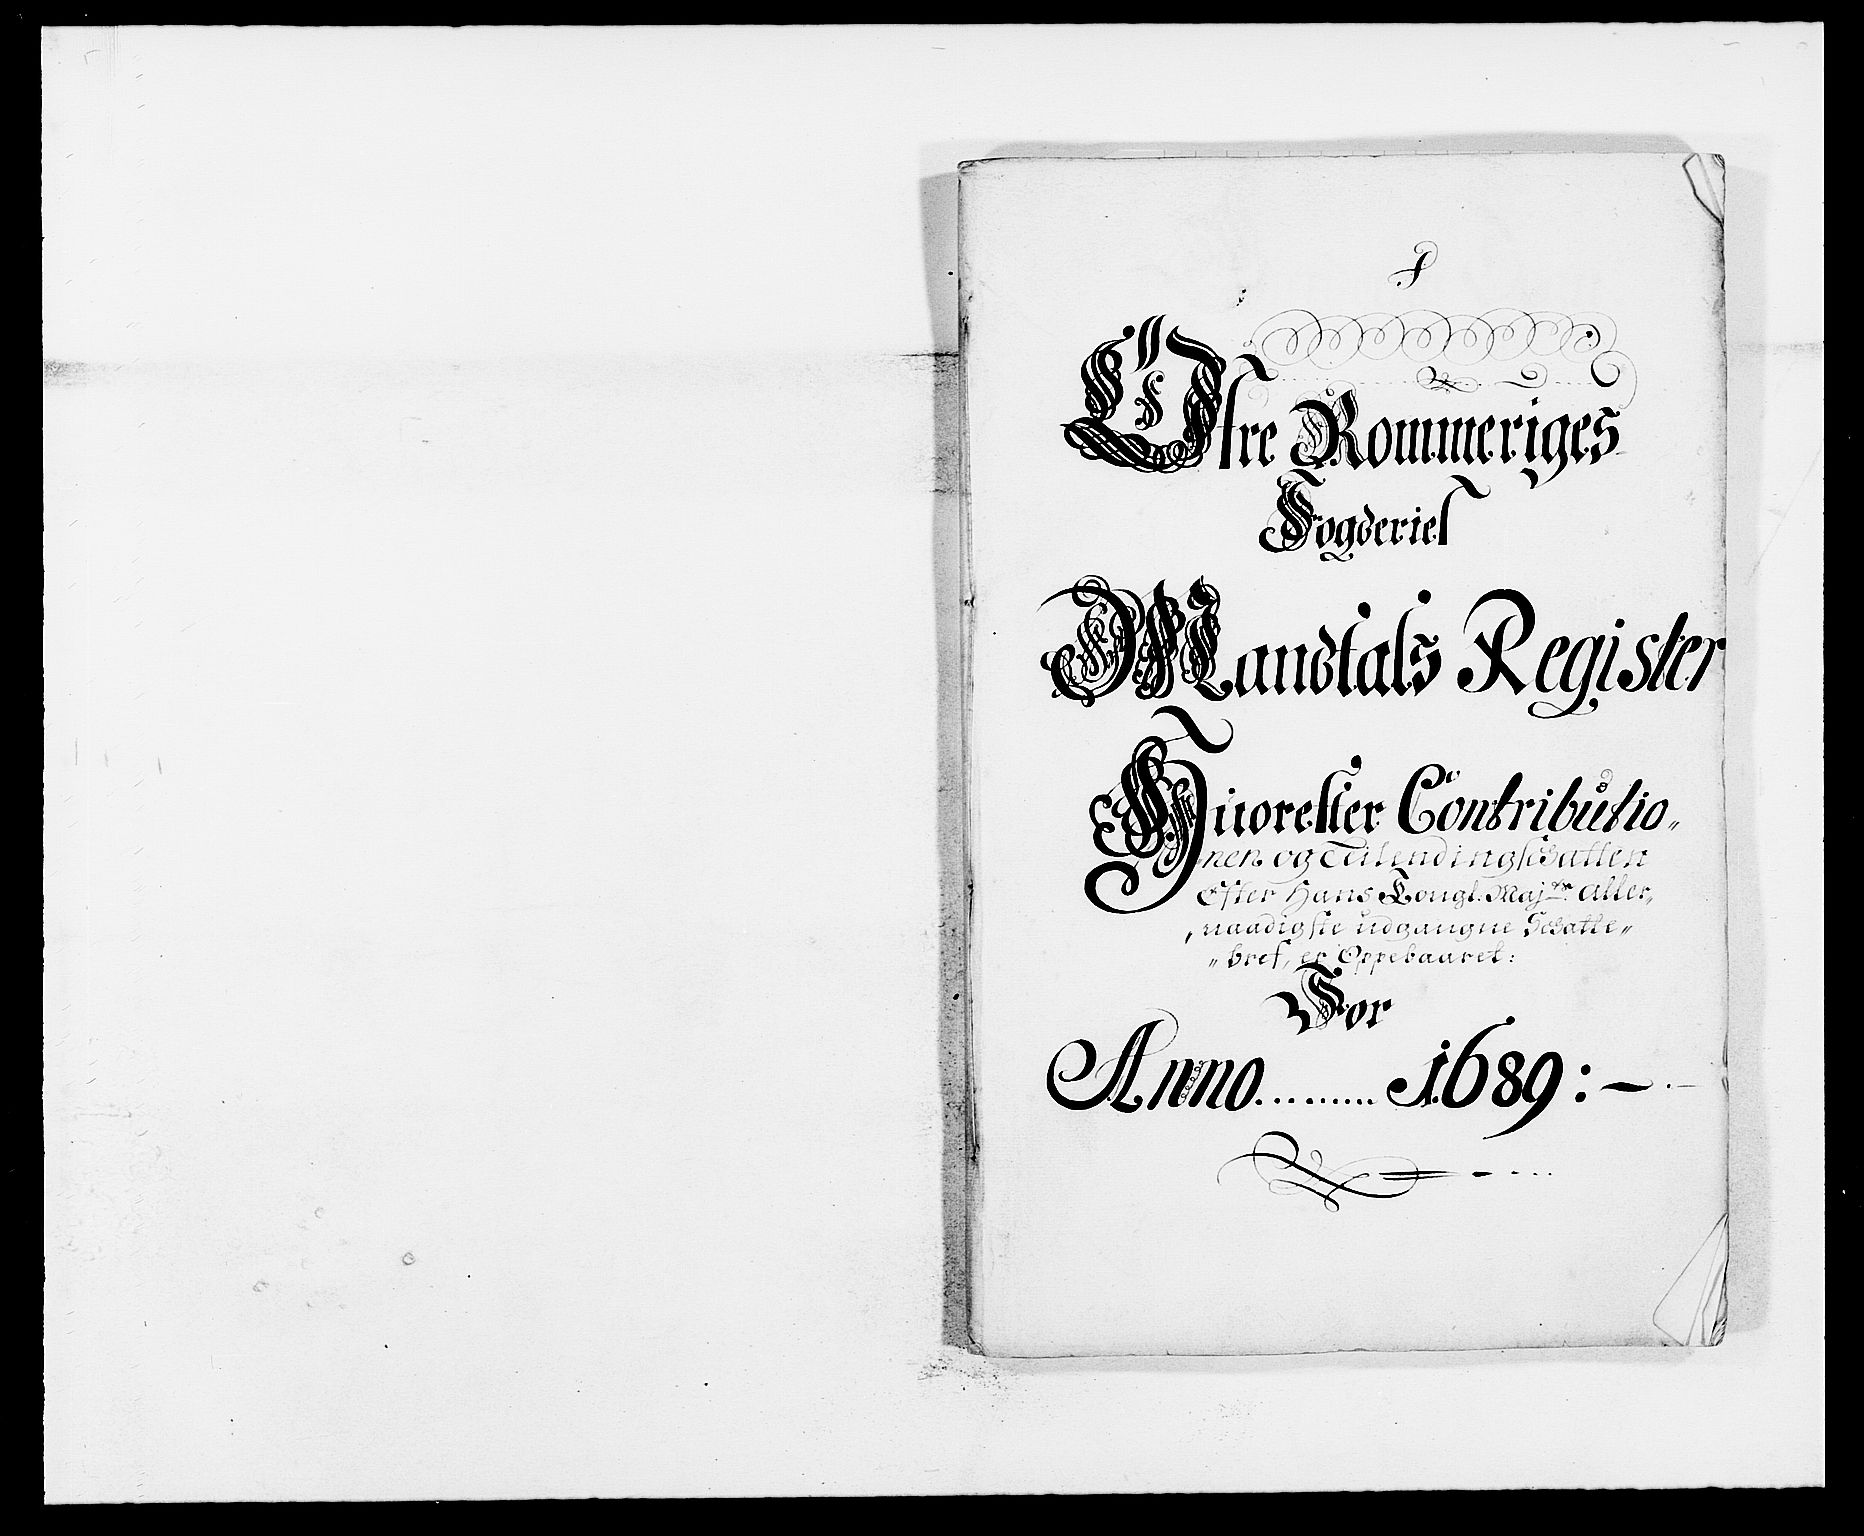 Øfre Rommeriges
Fogderiet
Mandtals Register
Huorefter Contributio„
nen og Tilendingschatten
Efter Hans Kongl. Maj.ts aller„
„naadigste udgangne Schatte„
„bref, er Oppebaaret:
For
Anno ........ 1689:—